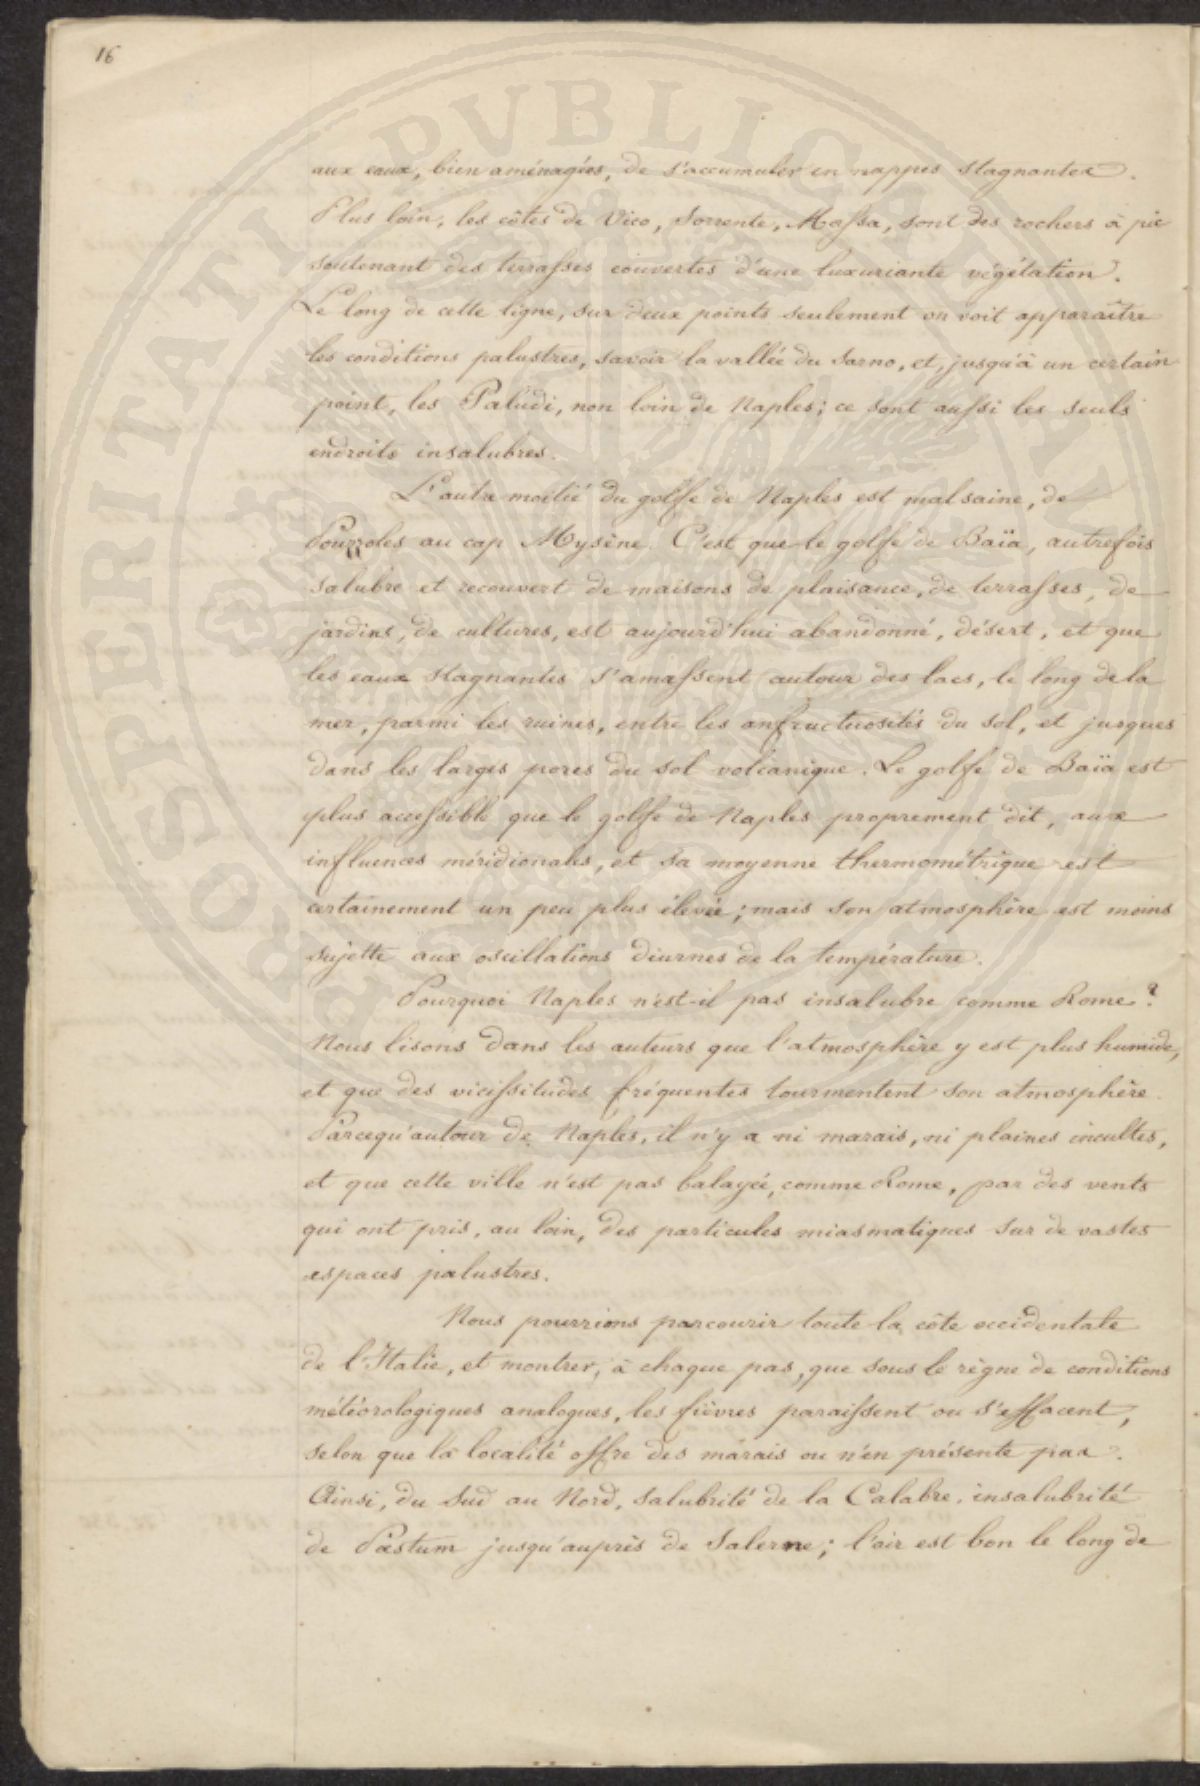 16
aux eaux, bien aménagées, de s'accumuler en nappes stagnantes.
Plus loin, les côtes de Vico, Sorrente, Massa, sont des rochers à pic
soutenant des terrasses couvertes d'une luxuriante végétation.
Le long de cette ligne, sur deux points seulement on voit apparaître
les conditions palustres, savoir la vallée du Sarno, et, jusqu'à un certain
point, les Paludi, non loin de Naples; ce sont aussi les seuls
endroits insalubres.
L'autre moitié du golfe de Naples est malsaine, de
Pouzzoles au cap Mysène. C'est que le golfe de Baïa, autrefois
salubre et recouvert de maisons de plaisance, de terrasses, de
jardins, de cultures, est aujourd'hui abandonné, désert, et que
les eaux stagnantes s'amassent autour des lacs, le long de la
mer, parmi les ruines, entre les anfractuosités du sol, et jusques
dans les larges pores du sol volcanique. Le golfe de Baïa est
plus accessible que le golfe de Naples proprement dit, aux
influences méridionales, et sa moyenne thermométrique est
certainement un peu plus élevée; mais son atmosphère est moins
sujette aux oscillations diurnes de la température.
Pourquoi Naples n'est-il pas insalubre comme Rome?
Nous lisons dans les auteurs que l'atmosphère y est plus humide,
et que des vicissitudes fréquentes tourmentent son atmosphère.
Parcequ'autour de Naples, il n'y a ni marais, ni plaines incultes,
et que cette ville n'est pas balayée, comme Rome, par des vents
qui ont pris, au loin, des particules miasmatiques sur de vastes
espaces palustres.
Nous pourrions parcourir toute la côte occidentale
de l'Italie, et montrer, à chaque pas, que sous le règne de conditions
météorologiques analogues, les fièvres paraissent ou s'effacent,
selon que la localité offre des marais ou n'en présente pas.
Ainsi, du Sud au Nord, salubrité de la Calabre, insalubrité
de Pæstum jusqu'auprès de Salerne; l'air est bon le long de
PROSPERITATI PVBLICAE